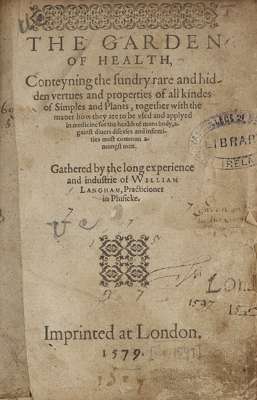 THE GARDEN
OF HEALTH,
Conteyning the sundry rare and hid-
den vertues and properties of all kindes
of Simples and Plants, together with the
maner how they are to be vsed and applyed
in medicine for the health of mans body, a-
gainst diuers diseases and infirmi-
ties most common a-
mongst men.
Gathered by the long experience
and industrie of WILLIAM
LANGHAM, Practicioner
in Phisicke.
LIBRAR
IREL
Lon
1597
Imprinted at London.
1579.